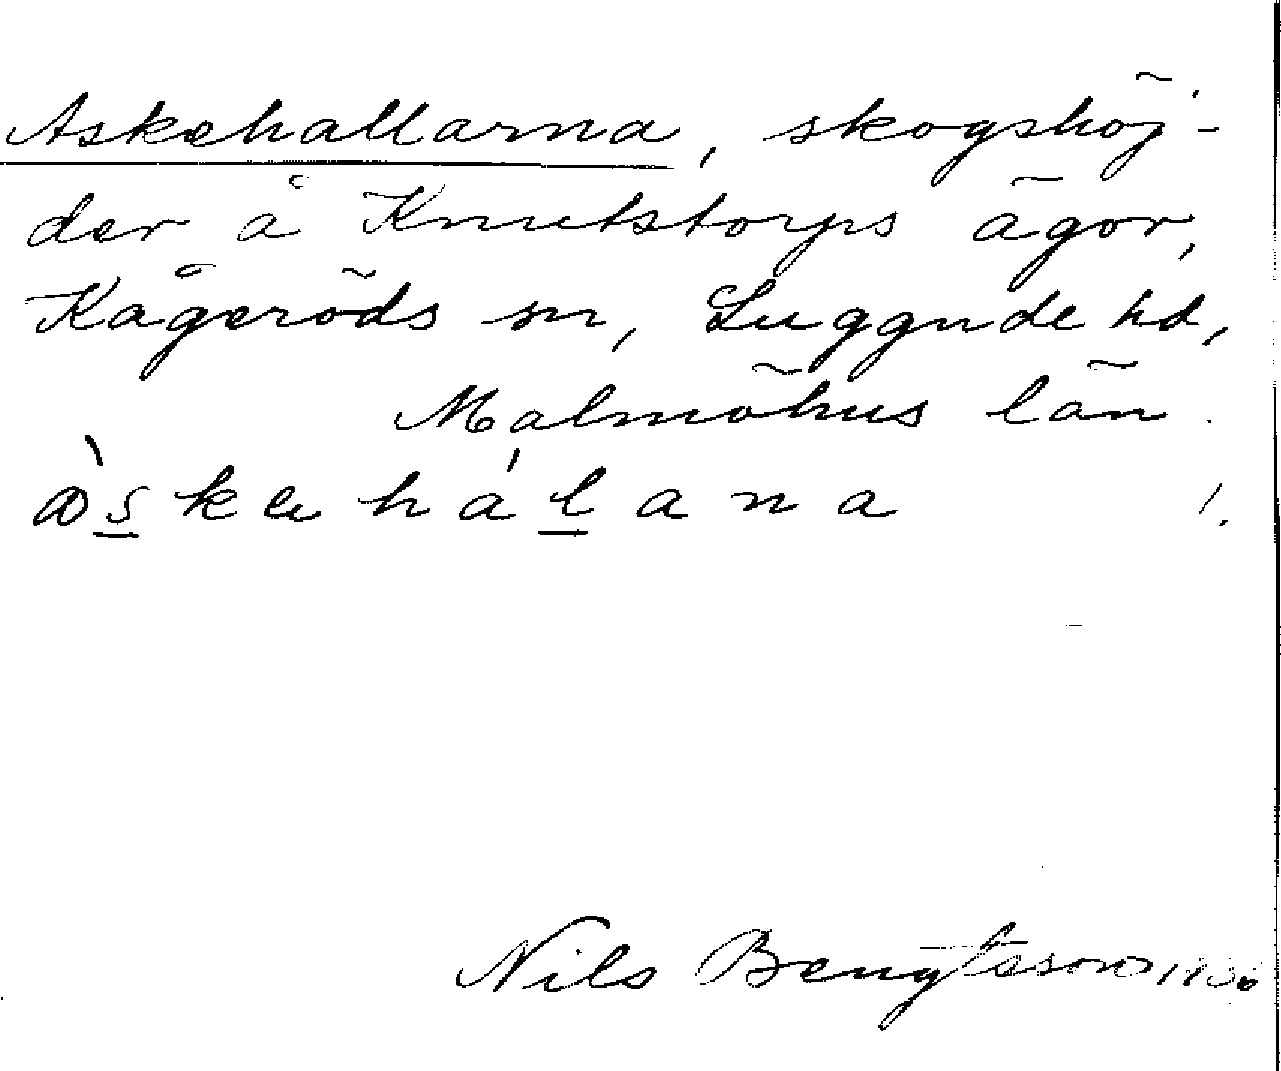 Askehallarna, skogshöj-
der å Knutstorps ägor,
Kågeröds sn, Luggude hd,
Malmöhus län.
Nils Bengtsson 1936